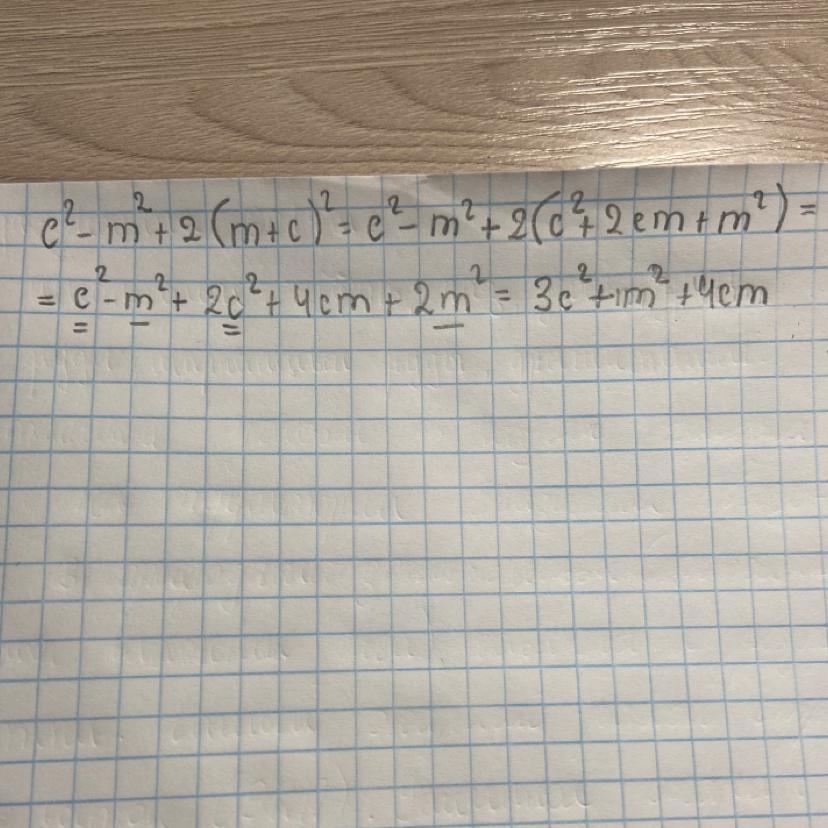 c² - m² + 2(m+c)² = c² - m² + 2(c² + 2cm + m²) =
= c² - m² + 2c² + 4cm + 2m² = 3c² + 1m² + 4cm